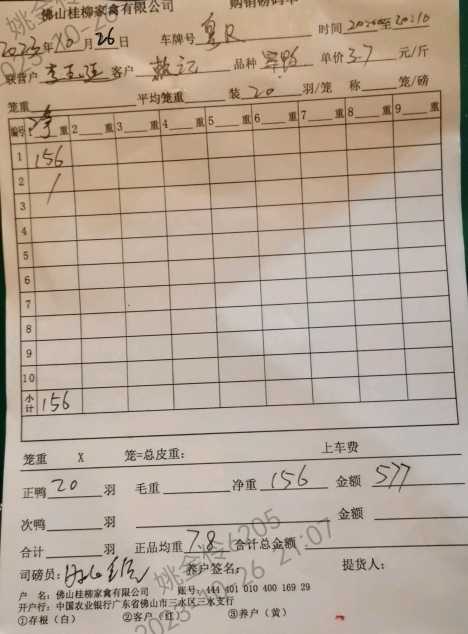 佛山桂柳家禽有限公司 购销磅码单
2023年10月26日 车牌号 时间 20:00至20:10
联营户 客户 品种 单价3.7元/斤
笼重 平均笼重 装20羽/笼 称 笼/磅
编号 净重 2 重 3 重 4 重 5 重 6 重 7 重 8 重 9 重
1 156
2 /
3
4
5
6
7
8
9
10
小计 156
笼重 X 笼=总皮重: 上车费
正鸭20羽 毛重 净重156 金额577
次鸭 羽 金额
合计 羽 正品均重7.8 合计总金额
司磅员: 养户签名: 提货人:
户 名: 佛山桂柳家禽有限公司 账号: 444 401 010 400 169 29
开户行: 中国农业银行广东省佛山市三水区三水支行
①存根（白） ②客户（红） ③养户（黄）
姚金伶6205
2023-10-26 21:07